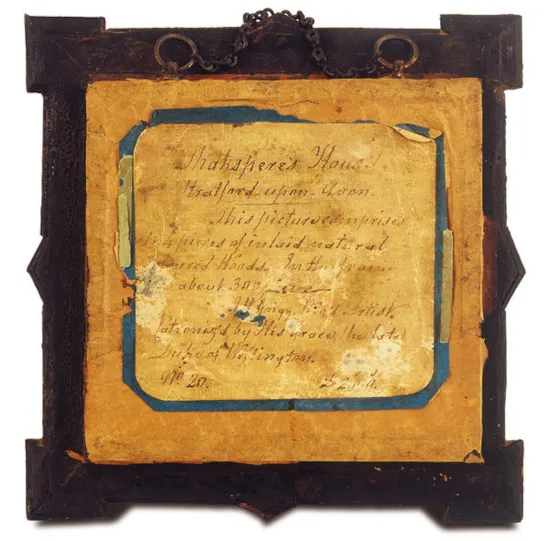 Shakspere's House
Stratford upon Avon.
This picture comprises
pieces of inlaid natural
Woods. In the frame
about 300
Artist.
by His grace the late
Duke of Wellington.
No 20.